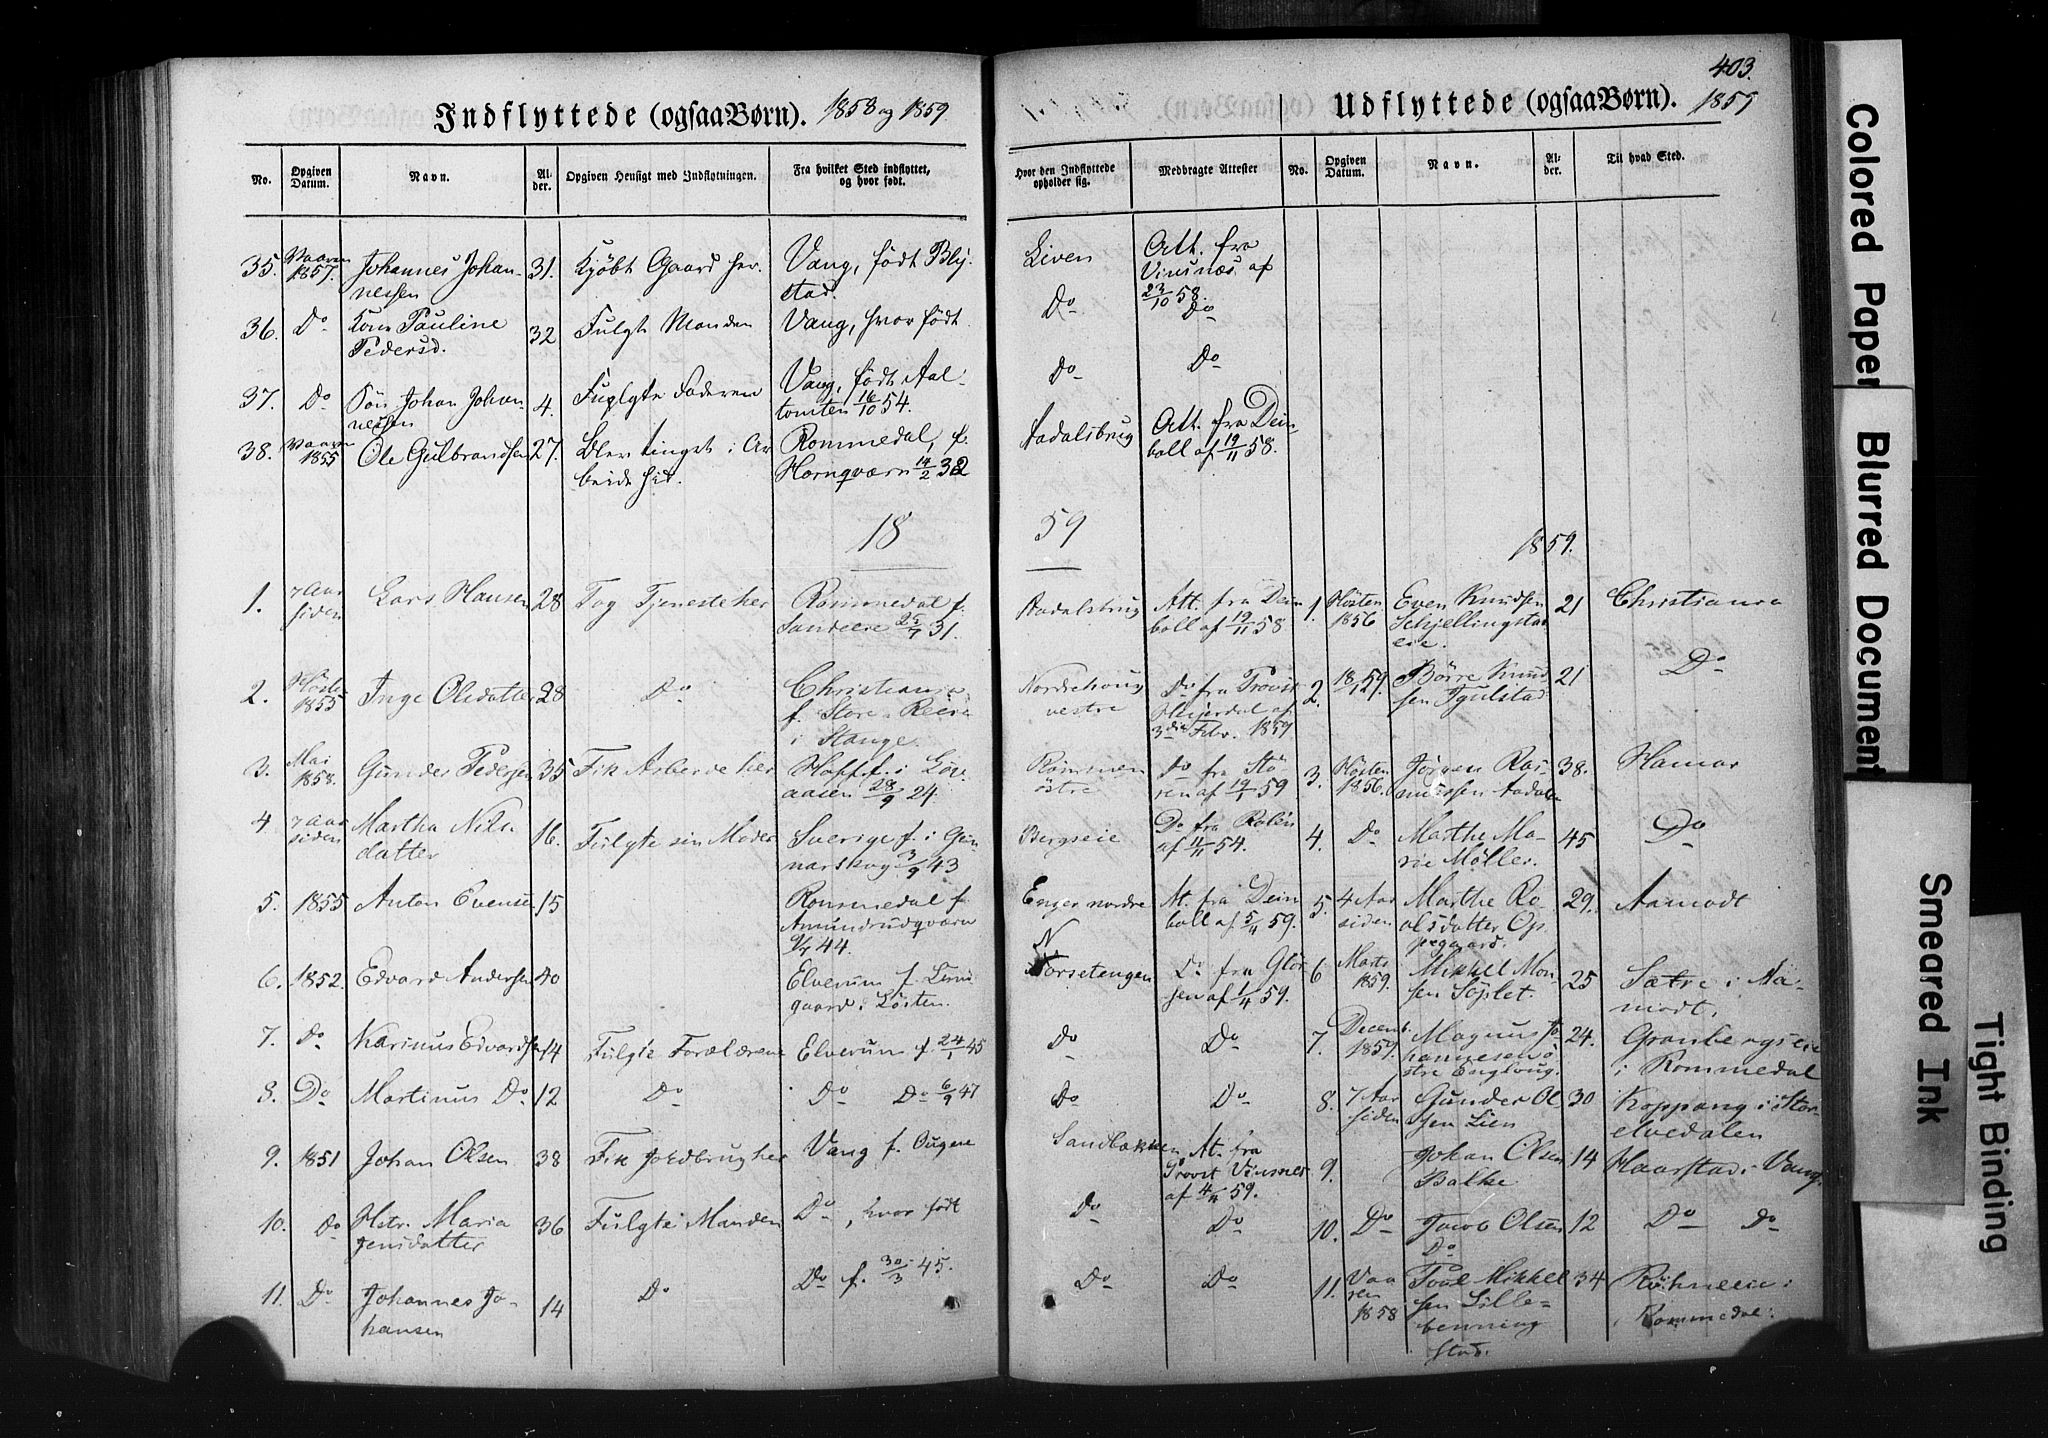 403.
Indflyttede (ogsaa Børn). 1858 og 1859.
No. Opgiven Datum. Navn. Alder. Opgiven Hensigt med Indflytningen. Fra hvilket Sted indflyttet, og hvor født. Hvor den Indflyttede opholder sig. Medbragte Attester
35. Vaaren 1857. Johannes Johannessen 31. Kjøbt Gaard her. Vang, født Blystad. Liven Att. fra Vinsnæs af 23/10 58.
36. Do Kone Pauline Pedersd. 32 Fulgte Manden Vang, hvor født Do Do
37. Do Søn Johan Johannessen 4. Fuglgte Faderen Vang, født Aaltomten 16/10 54. Do Do
38. Vaaren 1855 Ole Gulbrandsen 27. Blev tinget i Arbeide hit. Rommedal, f. Hornqværn 14/2 32 Aadalsbrug Att. fra Deinboll af 19/11 58.
1859
1. 7 Aar siden Lars Hansen 28 Tog Tjeneste her Rommedal f. Sandeeie 25/7 31. Aadalsbrug Att. fra Deinboll af 19/11 58
2. Høsten 1855 Inge Olsdatter 28 Do Christiania f. Store Reeie i Stange. Nordehoug vestre Do fra Provst Hjerdal af 3die Febr. 1859
3. Mai 1858. Gunder Pedersen 35 Fik Arbeide her Hoff f. i Løvaasen 28/9 24. Rømmen østre Do fra Stören af 19/1 59
4. 7 Aar siden Martha Nilsdatter 16. Fulgte sin Moder Sverige f. i Gunnarskog 3/9 43 Bergseie Do fra Rolén af 11/11 54.
5. 1855 Anton Evensen 15 Rommedal f. Amundrudqværn 9/7 44. Enger nordre At. fra Deinboll af 5/4 59.
6. 1852. Edvard Andersen 40 Elverum f. gaard i Løsten. Norsetengen Do fra Glørsen af 1/4 59.
7. Do Karinus Edvardsen 14 Fulgte Forældrene Elverum f. 24/1 45 Do Do
8. Do Martinus Do 12 Do Do Do 6/9 47 Do Do
9. 1851 Johan Olsen 38 Fik Jordbrug her Vang f. Ougere Sandbækken At. fra Provst Vinsnes af 4/4 59.
10. Do Hstr. Maria Jensdatter 36 Fulgte Manden Do, hvor født Do Do
11. Do Johannes Johansen 14 Do Do f. 30/3 45. Do Do
Udflyttede (ogsaa Børn). 1859
No. Opgiven Datum. Navn. Alder. Til hvad Sted.
1859.
1. Høsten 1856 Even Knudsen Schjellingstadeie 21 Christiania
2. 18/1 59. Børre Knudsen Igulstad 21 Do
3. Høsten 1856. Jørgen Rasmussen Aadalen 38. Hamar
4. Do Marthe Marie Møller. 45 Do
5. 4 Aar siden Marthe Roalsdatter Oppegaard. 29. Aamodt
6 Marts 1859. Mikkel Monsen Söplet. 25 Sætre i Aamodt.
7. Decemb. 1859. Magnus Johannesen østre Englaug. 24. Granbergseie i Rommedal
8. 7 Aar siden Gunder Olsen Lien 30 Koppang i Storelvedalen
9. Johan Olsen Balke 14 Haarstad i Vang.
10. Do Jacob Olsen Do 12 Do Do
11. Vaaren 1858 Poul Mikkelsen Lillebenningstad. 34 Röhneeie i Rommedal.
Colored Paper
Blurred Document
Smeared Ink
Tight Binding